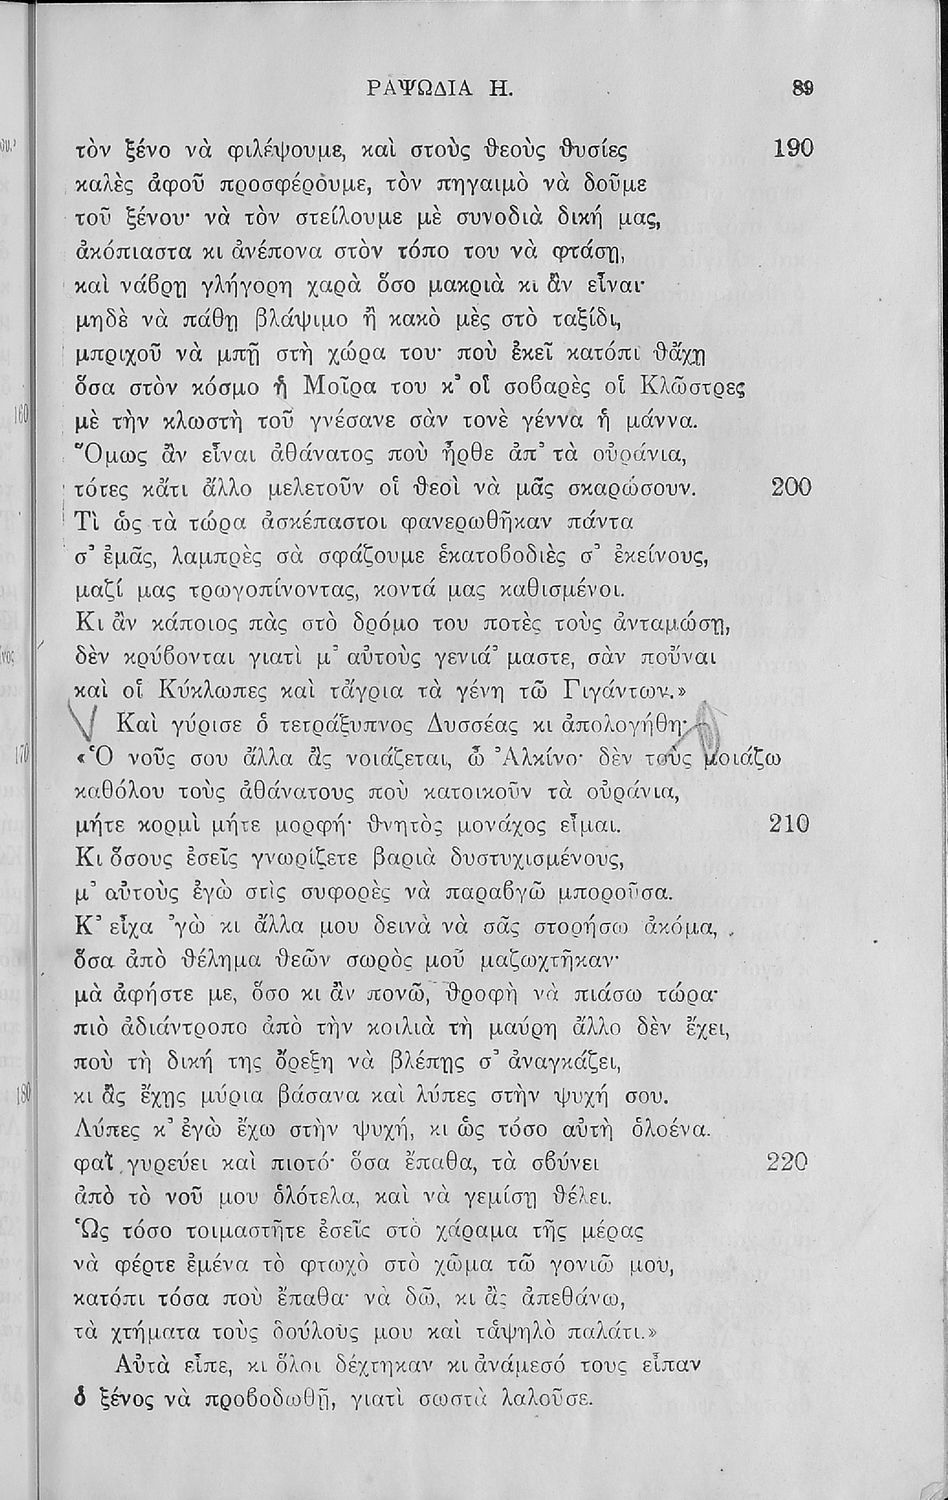 ΡΑΨΩΔΙΑ Η. 89
τὸν ξένο νὰ φιλέψουμε, καὶ στοὺς θεοὺς θυσίες 190
καλὲς ἀφοῦ προσφέρουμε, τὸν πηγαιμὸ νὰ δοῦμε
τοῦ ξένου· νὰ τὸν στείλουμε μὲ συνοδιὰ δική μας,
ἀκόπιαστα κι ἀνέπονα στὸν τόπο του νὰ φτάσῃ,
καὶ νάβρῃ γλήγορη χαρὰ ὅσο μακριὰ κι ἂν εἶναι·
μηδὲ νὰ πάθῃ βλάψιμο ἢ κακὸ μὲς στὸ ταξίδι,
μπριχοῦ νὰ μπῇ στὴ χώρα του· ποὺ ἐκεῖ κατόπι θἄχῃ
ὅσα στὸν κόσμο ἡ Μοῖρα του κ᾿ οἱ σοβαρὲς οἱ Κλῶστρες
μὲ τὴν κλωστὴ τοῦ γνέσανε σὰν τονὲ γέννα ἡ μάννα.
Ὅμως ἂν εἶναι ἀθάνατος ποὺ ἦρθε ἀπ᾿ τὰ οὐράνια,
τότες κἄτι ἄλλο μελετοῦν οἱ θεοὶ νὰ μᾶς σκαρώσουν. 200
Τὶ ὡς τὰ τώρα ἀσκέπαστοι φανερωθῆκαν πάντα
σ᾿ ἐμᾶς, λαμπρὲς σὰ σφάζουμε ἑκατοβοδιὲς σ᾿ ἐκείνους,
μαζί μας τρωγοπίνοντας, κοντά μας καθισμένοι.
Κι ἂν κάποιος πὰς στὸ δρόμο του ποτὲς τοὺς ἀνταμώσῃ,
δὲν κρύβονται γιατὶ μ᾿ αὐτοὺς γενιά᾿ μαστε, σὰν ποὖναι
καὶ οἱ Κύκλωπες καὶ τἄγρια τὰ γένη τῶ Γιγάντων.»
Καὶ γύρισε ὁ τετράξυπνος Δυσσέας κι ἀπολογήθη·
«Ὁ νοῦς σου ἄλλα ἂς νοιάζεται, ὦ Ἀλκίνο· δὲν τοὺς μοιάζω
καθόλου τοὺς ἀθάνατους ποὺ κατοικοῦν τὰ οὐράνια,
μήτε κορμὶ μήτε μορφή· θνητὸς μονάχος εἶμαι. 210
Κι ὅσους ἐσεῖς γνωρίζετε βαριὰ δυστυχισμένους,
μ᾿ αὐτοὺς ἐγὼ στὶς συφορὲς νὰ παραβγῶ μποροῦσα.
Κ᾿ εἶχα ᾿γὼ κι ἄλλα μου δεινὰ νὰ σᾶς στορήσω ἀκόμα,
ὅσα ἀπὸ θέλημα θεῶν σωρὸς μοῦ μαζωχτῆκαν·
μὰ ἀφῆστε με, ὅσο κι ἂν πονῶ, θροφὴ νὰ πιάσω τώρα·
πιὸ ἀδιάντροπο ἀπὸ τὴν κοιλιὰ τὴ μαύρη ἄλλο δὲν ἔχει,
ποὺ τὴ δική της ὄρεξη νὰ βλέπῃς σ᾿ ἀναγκάζει,
κι ἂς ἔχῃς μύρια βάσανα καὶ λύπες στὴν ψυχή σου.
Λύπες κ᾿ ἐγὼ ἔχω στὴν ψυχή, κι ὡς τόσο αὐτὴ ὁλοένα
φαῒ γυρεύει καὶ πιοτό· ὅσα ἔπαθα, τὰ σβύνει 220
ἀπὸ τὸ νοῦ μου ὁλότελα, καὶ νὰ γεμίσῃ θέλει.
Ὡς τόσο τοιμαστῆτε ἐσεῖς στὸ χάραμα τῆς μέρας
νὰ φέρτε ἐμένα τὸ φτωχὸ στὸ χῶμα τῶ γονιῶ μου,
κατόπι τόσα ποὺ ἔπαθα· νὰ δῶ, κι ἂς ἀπεθάνω,
τὰ χτήματα τοὺς δούλους μου καὶ τἀψηλὸ παλάτι.»
Αὐτὰ εἶπε, κι ὅλοι δέχτηκαν κι ἀνάμεσό τους εἶπαν
ὁ ξένος νὰ προβοδωθῇ, γιατὶ σωστὰ λαλοῦσε.
160
170
180